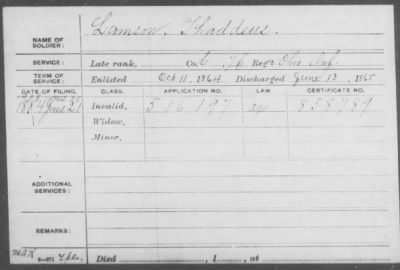 Lamson, Thaddeus.
NAME OF SOLDIER:
SERVICE: Late rank, Co. C, Reg't Ohio Inf.
TERM OF SERVICE: Enlisted Oct 11, 1864 Discharged June 13, 1865
DATE OF FILING. CLASS. APPLICATION NO. LAW. CERTIFICATE NO.
1884 June 21 Invalid, 516197 858789
Widow,
Minor,
ADDITIONAL SERVICES:
REMARKS:
Died , 1 , at